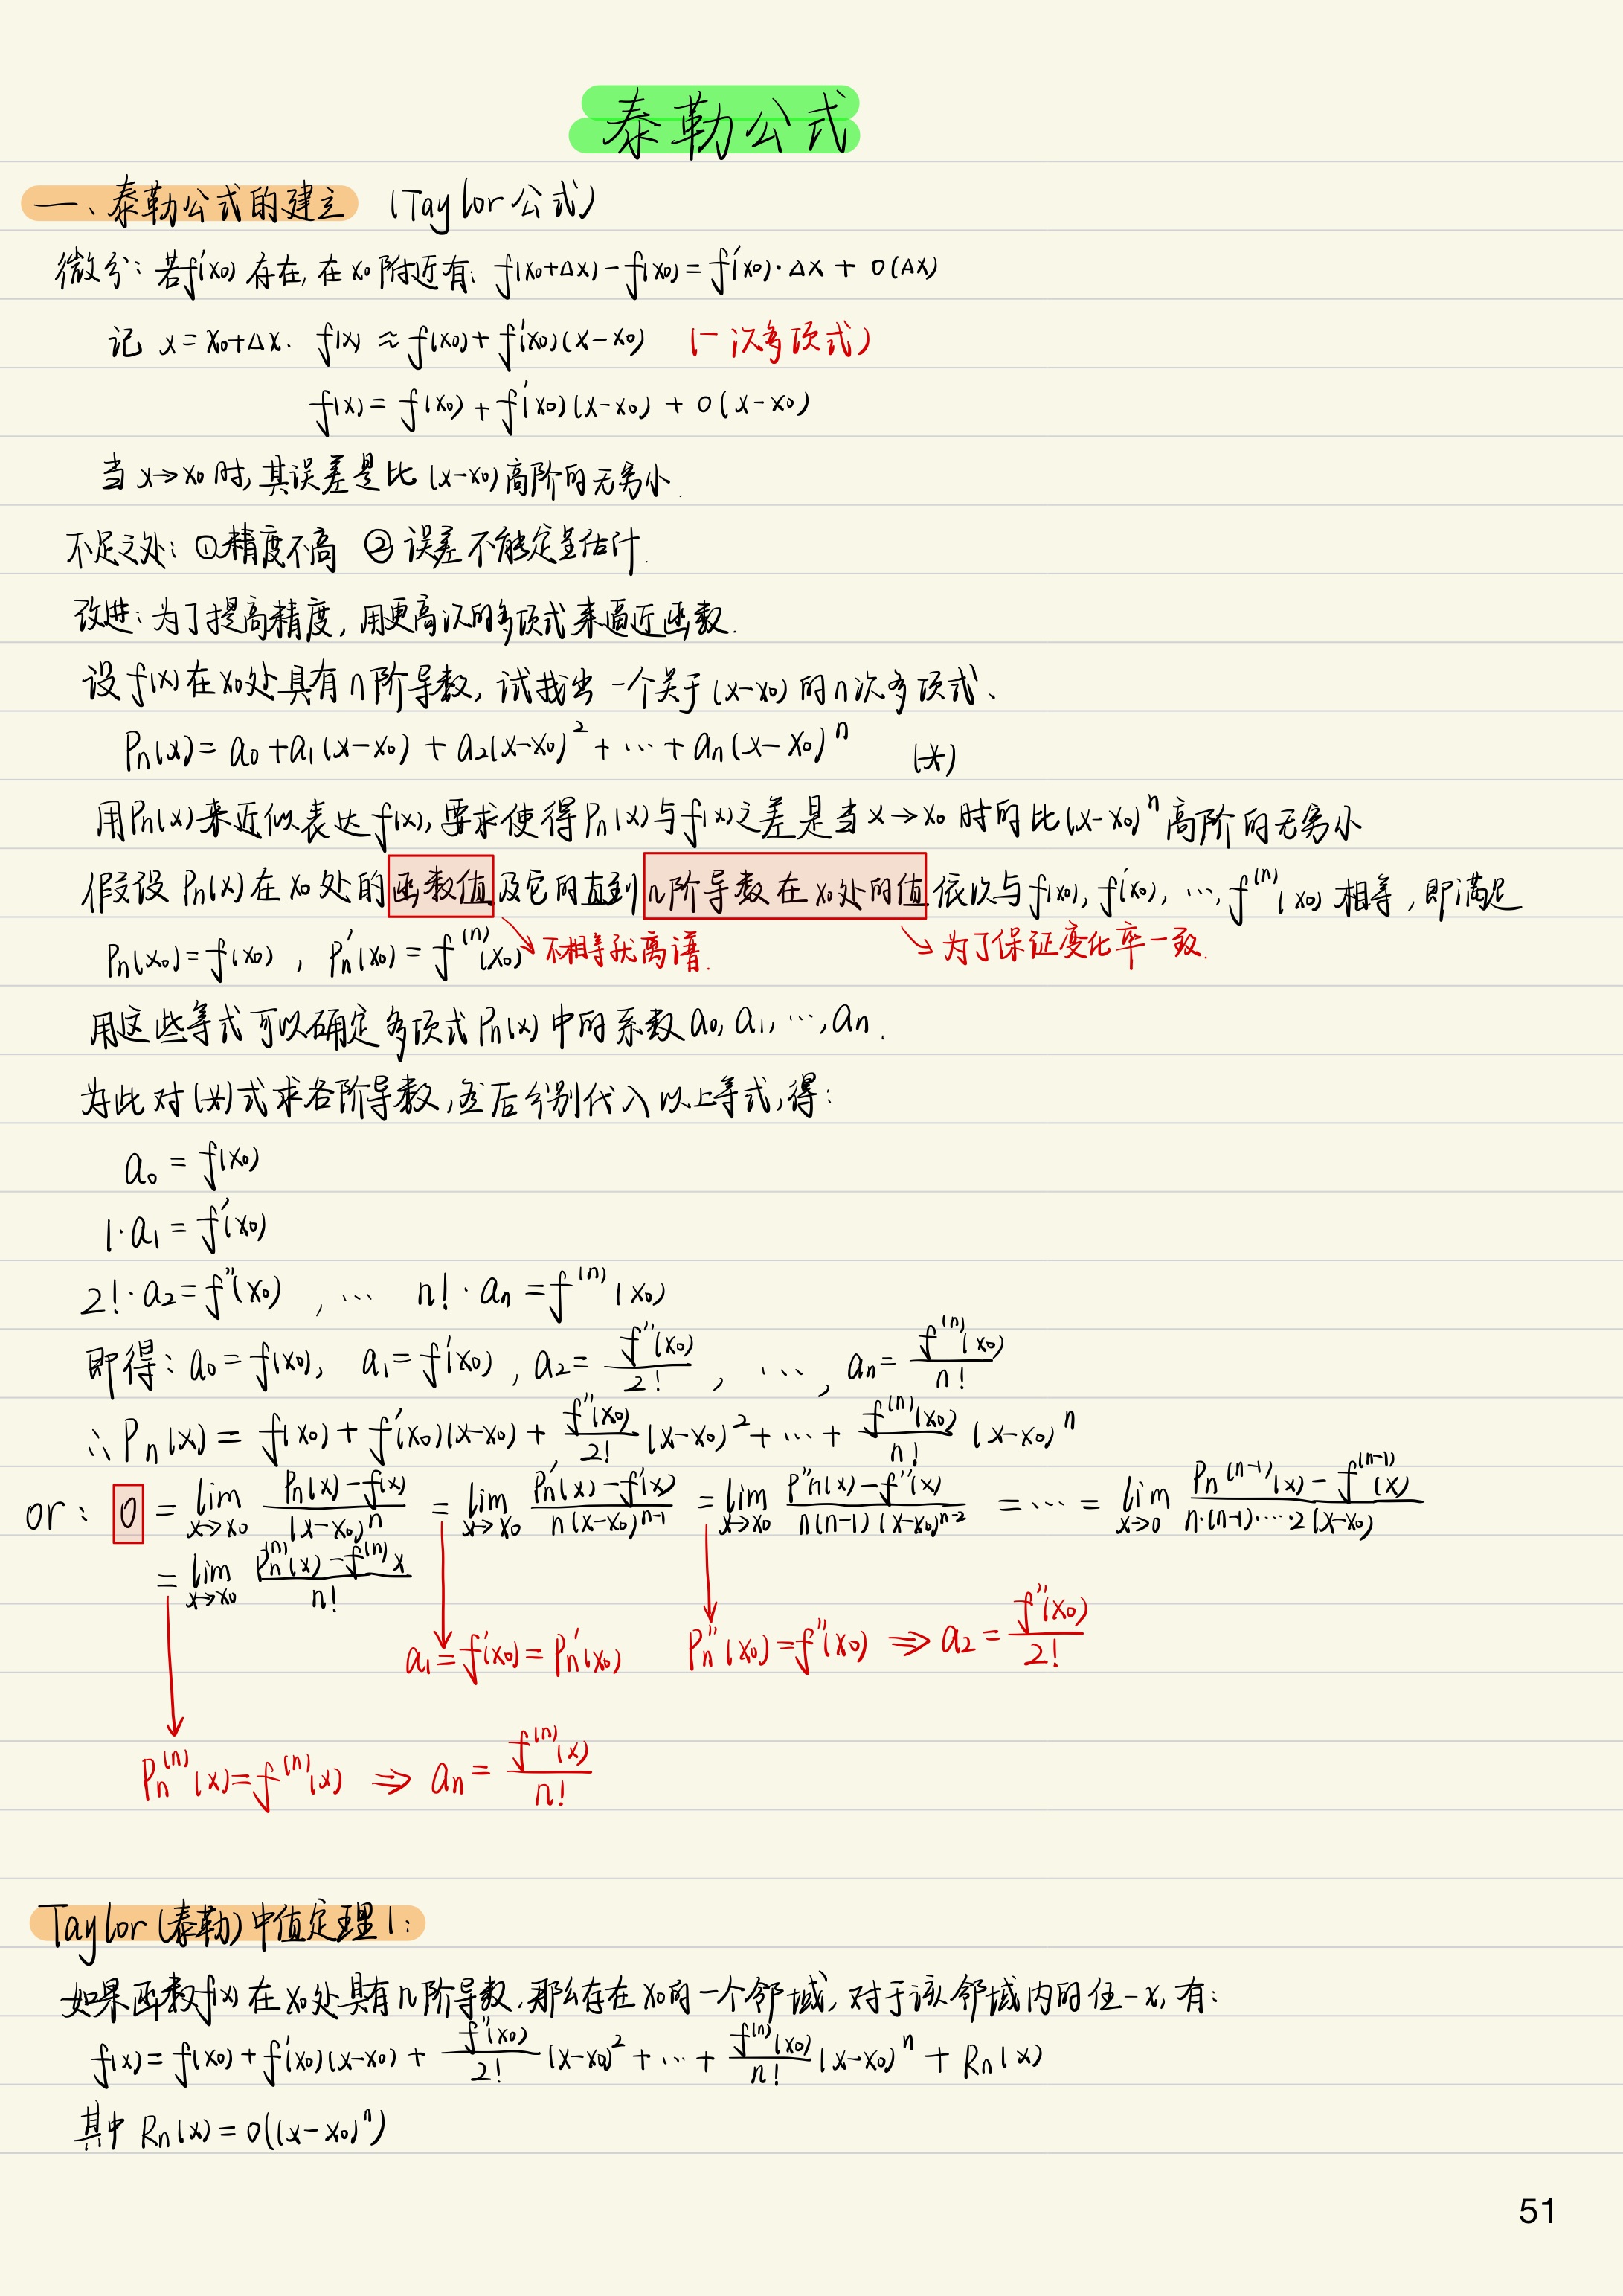 泰勒公式
一、泰勒公式的建立 (Taylor 公式)
微分：若f'(x₀) 存在, 在 x₀ 附近有: f(x₀+Δx)-f(x₀)=f'(x₀)·Δx + o(Δx)
记 x=x₀+Δx. f(x) ≈ f(x₀)+f'(x₀)(x-x₀) (一次多项式)
f(x)= f(x₀)+f'(x₀)(x-x₀)+o(x-x₀)
当 x→x₀ 时, 其误差是比 (x-x₀) 高阶的无穷小.
不足之处: ①精度不高 ② 误差不能定量估计.
改进: 为了提高精度, 用更高次的多项式来逼近函数.
设 f(x) 在 x₀处具有 n 阶导数, 试找出一个关于 (x-x₀) 的 n 次多项式、
Pn(x)= a₀+a₁(x-x₀)+a₂(x-x₀)²+…+an(x-x₀)ⁿ (*)
用Pn(x)来近似表达f(x), 要求使得Pn(x)与f(x)之差是当 x→x₀ 时的比(x-x₀)ⁿ高阶的无穷小
假设 Pn(x)在 x₀ 处的函数值及它的直到n阶导数在x₀处的值依次与f(x₀), f'(x₀), …, f⁽ⁿ⁾(x₀) 相等, 即满足
Pn(x₀)=f(x₀), Pn'(x₀)=f⁽ⁿ⁾(x₀) 不相等就离谱. 为了保证变化率一致.
用这些等式可以确定多项式Pn(x)中的系数 a₀, a₁, …, an.
为此对(*)式求各阶导数, 然后分别代入以上等式, 得:
a₀ = f(x₀)
1·a₁ = f'(x₀)
2!·a₂=f''(x₀) , … n!·an=f⁽ⁿ⁾(x₀)
即得: a₀=f(x₀), a₁=f'(x₀), a₂=f''(x₀)/2!, …, an=f⁽ⁿ⁾(x₀)/n!
∴Pn(x)= f(x₀)+f'(x₀)(x-x₀)+f''(x₀)/2!(x-x₀)²+…+f⁽ⁿ⁾(x₀)/n!(x-x₀)ⁿ
or: 0 = lim x→x₀ Pn(x)-f(x)/(x-x₀)ⁿ = lim x→x₀ Pn'(x)-f'(x)/n(x-x₀)ⁿ⁻¹ = lim x→x₀ P''n(x)-f''(x)/n(n-1)(x-x₀)ⁿ⁻² =…= lim x→0 Pn⁽ⁿ⁻¹⁾(x)-f⁽ⁿ⁻¹⁾(x)/n·(n-1)·…·2(x-x₀)
= lim x→x₀ Pn⁽ⁿ⁾(x)-f⁽ⁿ⁾x/n!
a₁=f'(x₀)=Pn'(x₀) Pn''(x₀)=f''(x₀) ⇒ a₂=f''(x₀)/2!
Pn⁽ⁿ⁾(x)=f⁽ⁿ⁾(x) ⇒ an=f⁽ⁿ⁾(x)/n!
Taylor(泰勒)中值定理1:
如果函数f(x)在x₀处具有n阶导数, 那么存在x₀的一个邻域, 对于该邻域内的任一x, 有:
f(x)=f(x₀)+f'(x₀)(x-x₀)+f''(x₀)/2!(x-x₀)²+…+f⁽ⁿ⁾(x₀)/n!(x-x₀)ⁿ+Rn(x)
其中 Rn(x)=o((x-x₀)ⁿ)
51